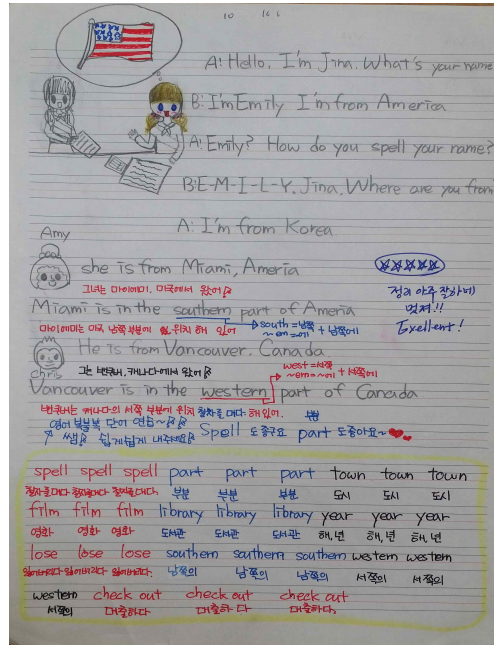 A: Hello. I'm Jina. What's your name
B: I'm Emily I'm from America
A: Emily? How do you spell your name?
B: E-M-I-L-Y. Jina. Where are you from
A: I'm from Korea
Amy
she is from Miami, Ameria
그녀는 마이애미, 미국에서 왔어
정리 아주 잘하네
멋져!!
Exellent!
Miami is in the southern part of Ameria
마이애미는 미국 남쪽 부분에 위치 해 있어
south = 남쪽 + 남쪽에
He is from Vancouver. Canada
chris
그는 벤쿠버, 캐나다에서 왔어
west = 서쪽
+ 서쪽에
Vancouver is in the western part of Canada
벤쿠버는 캐나다의 서쪽 부분에 위치 해 있어.
철자를 대다
부분
영어 단어 연습~
쌤 쉽게쉽게 내주세요
Spell 도 좋구요 part 도 좋아요~
spell spell spell part part part town town town
철자를대다 철자를대다 철자를대다. 부분 부분 부분 도시 도시 도시
film film film library library library year year year
영화 영화 영화 도서관 도서관 도서관 해,년 해,년 해,년
lose lose lose southern southern southern western western
잃어버리다 잃어버리다 잃어버리다. 남쪽의 남쪽의 남쪽의 서쪽의 서쪽의
western check out check out check out
서쪽의 대출하다 대출하다 대출하다.